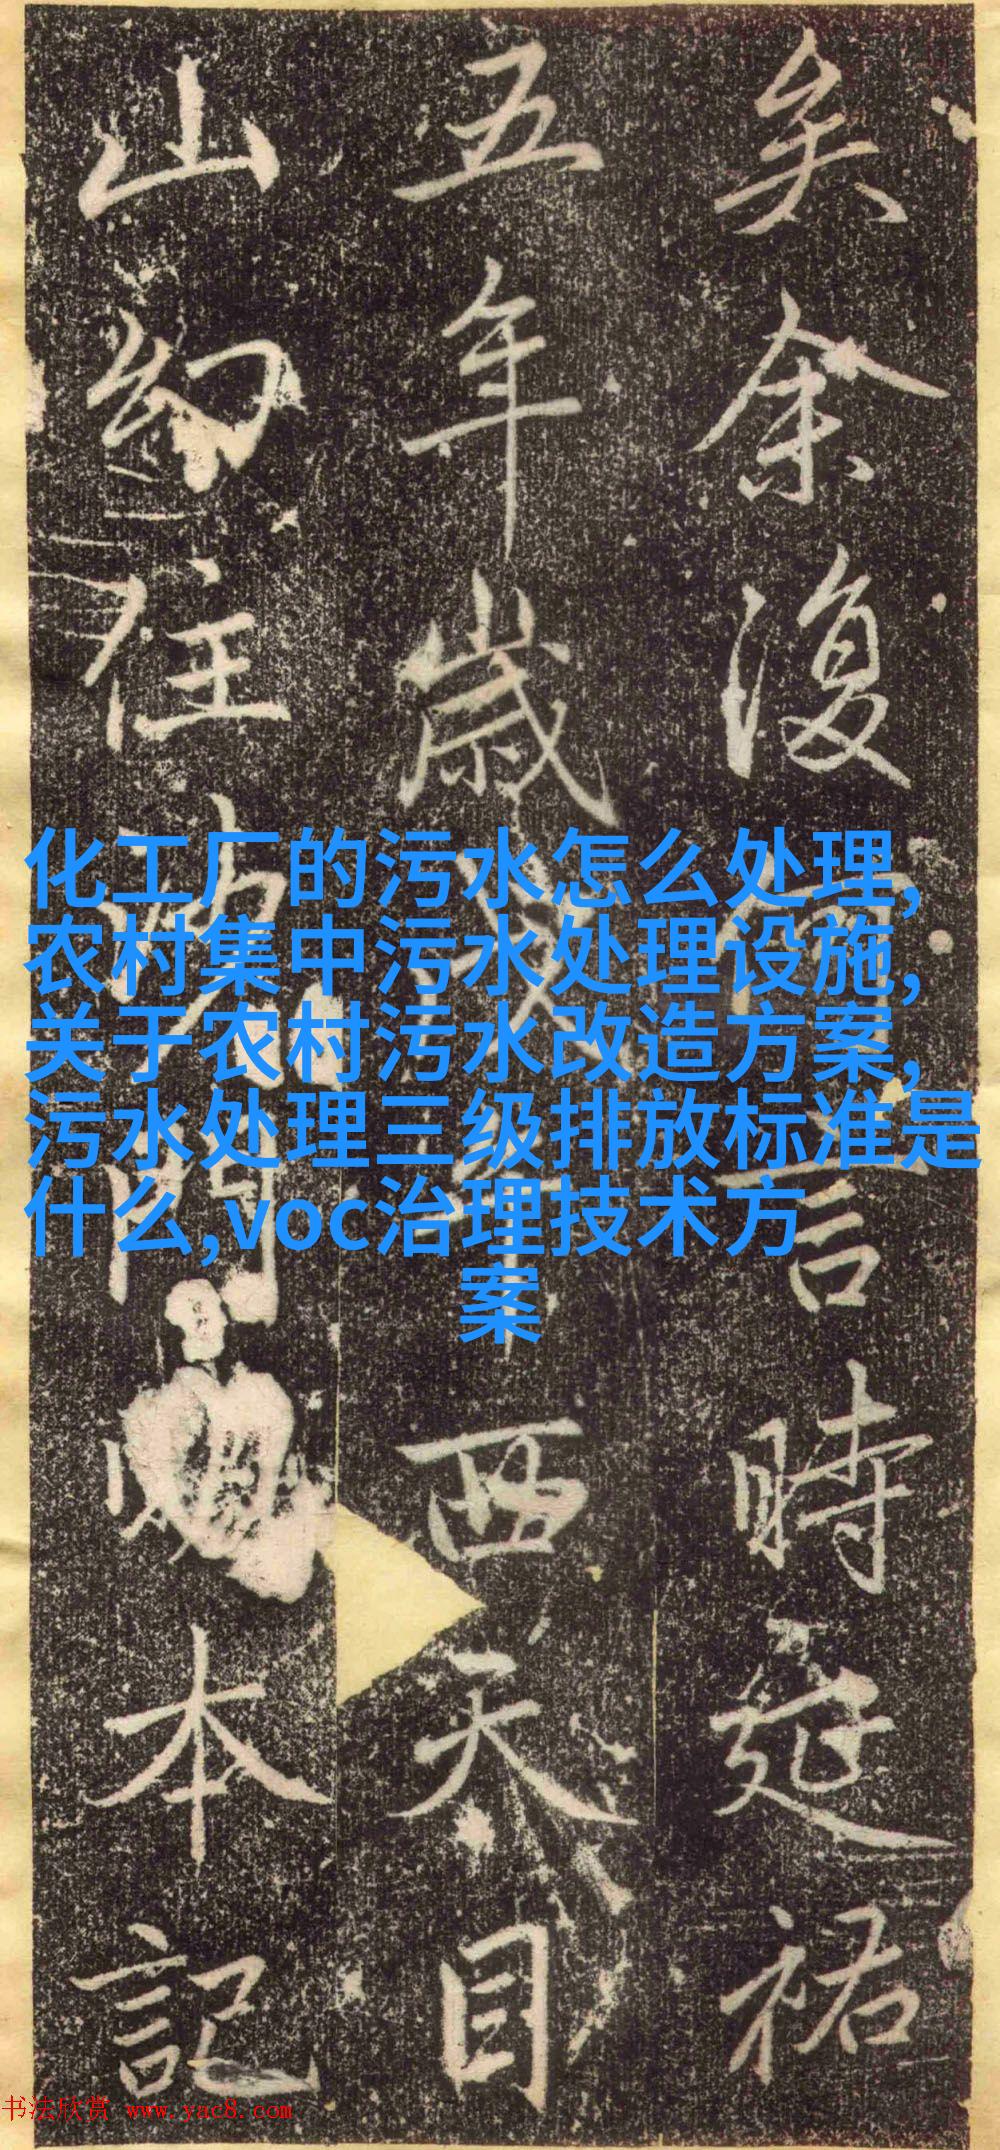 矣余復何言時延祐
五年歲戊午西天目
山幻住沙門明本記
化工厂的污水怎么处理,
农村集中污水处理设施,
关于农村污水改造方案,
污水处理三级排放标准是
什么,voc治理技术方
案
书法欣赏 www.yac8.com